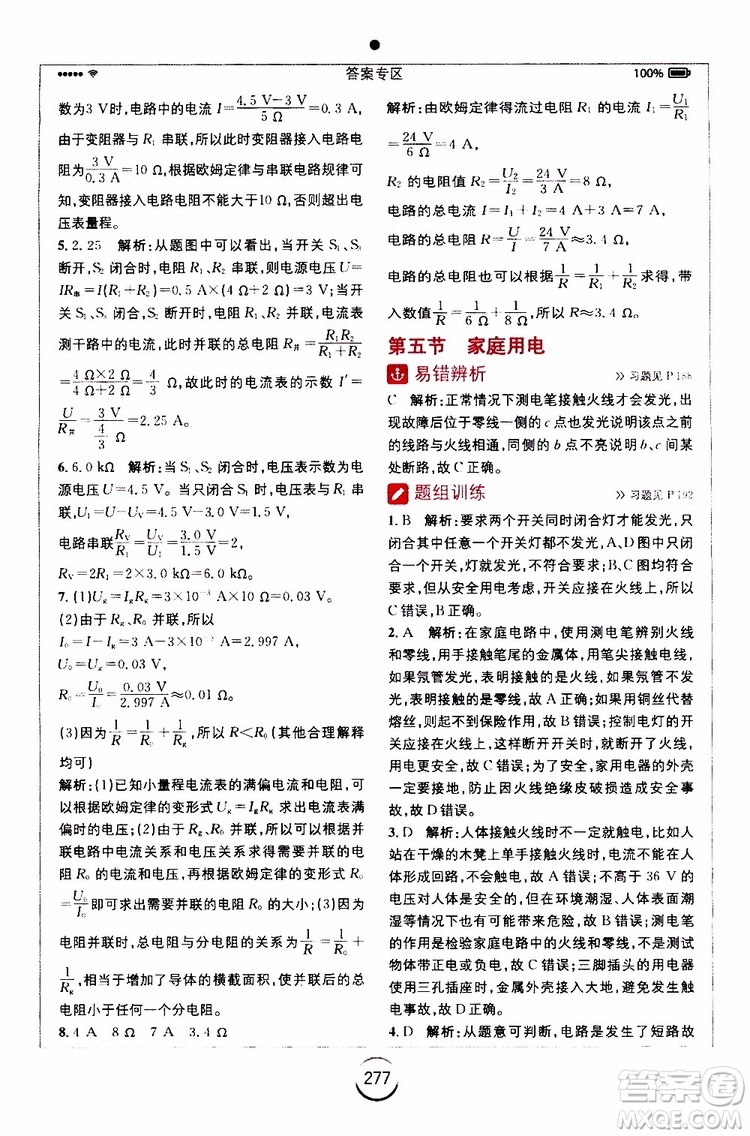 答案专区
100%
数为3 V时,电路中的电流 I=(4.5 V-3 V)/(5 Ω)=0.3 A,
由于变阻器与 R₁ 串联,所以变阻器接入电路电
阻为(3 V)/(0.3 A)=10 Ω,根据欧姆定律与串联电路规律可
知,变阻器接入电路电阻不能大于10 Ω,否则超出电
压表量程。
5. 2.25 解析:从题图中可以看出,当开关 S₁、S₃
断开,S₂ 闭合时,电阻 R₁、R₂ 串联,则电源电压 U=
IR串=I(R₁+R₂)=0.5 A×(4 Ω+2 Ω)=3 V;当开关
S₁、S₃ 闭合,S₂ 断开时,电阻 R₁、R₂ 并联,电流表
测干路中的电流,R并=R₁R₂/(R₁+R₂)
=(4 Ω×2 Ω)/(4 Ω+2 Ω)=4/3 Ω,此时的电流表的示数 I′=
U/R并=(3 V)/(4/3 Ω)=2.25 A。
6. 6.0 kΩ 解析:当 S₁、S₂ 闭合时,电压表示数为电
源电压 U=4.5 V。当只闭合 S₁ 时,电压表与 R₁ 的
电路串联R_V/R₁=U_V/U₁=(3.0 V)/(1.5 V)=2/1
R_V=2R₁=2×3.0 kΩ=6.0 kΩ。
7. (1)U_g=I_gR_g=3×10⁻³ A×10 Ω=0.03 V。
(2)由于 R_g、R₀ 并联,所以
I₀=I-I_g=3 A-3×10⁻³ A=2.997 A,
U₀=U_g=0.03 V,
R₀=U₀/I₀=(0.03 V)/(2.997 A)≈0.01 Ω。
(3)因为1/R=1/R₀+1/R_g,所以 R<R₀(其他合理解释
均可)
解析:(1)已知小量程电流表的满偏电流和电阻,可
根据欧姆定律的变形式 U_g=I_gR_g 求出电流表满
偏时的电压;(2)因为 R_g、R₀ 并联,所以可根据并
联电路中电流关系和电压关系求得需要并联的电
阻 R₀ 的电流和电压,再根据欧姆定律的变形式 R₀
=U₀/I₀即可求出需要并联的电阻 R₀ 的大小;(3)因为
电阻并联时,总电阻与分电阻的关系为1/R=1/R₀+
1/R_g,相当于增加了导体的横截面积,并联后的总电
阻小于任何一个分电阻。
8. 4 A 8 Ω 7 A 3.4 Ω
解析:由欧姆定律得流过电阻 R₁ 的电流 I₁=U₁/R₁
=(24 V)/(6 Ω)=4 A,
R₂ 的电阻值 R₂=U₂/I₂=(24 V)/(3 A)=8 Ω,
电路的总电流 I=I₁+I₂=4 A+3 A=7 A,
电路的总电阻 R=U/I=(24 V)/(7 A)≈3.4 Ω
电路的总电阻还可以根据1/R=1/R₁+1/R₂来求,带
入数值1/R=1/(6 Ω)+1/(8 Ω),所以 R≈3.4 Ω。
第五节 家庭用电
易错辨析 >> 习题见 P 188
C 解析:正常情况下测电笔接触火线才会发光,出
现故障后位于零线的 c 点也发光说明该点之前
的线路与火线相通,同侧的 b 点不亮说明 b、c 间某
处断路,故 C 正确。
题组训练 >> 习题见 P 192
1. B 解析:要求两个开关同时闭合灯才能发光,只
闭合其中任意一个开关灯都不发光,A、D 图中只闭
合一个开关,灯就发光,不符合要求;B、C 图符合要
求,但从安全用电考虑,开关应接在火线上,所以
C 错误,B 正确。
2. A 解析:在家庭电路中,使用测电笔辨别火线
和零线,用手接触笔尾的金属体,用笔尖接触导线,
如果氖管发光,表明接触的是火线,如果氖管不发
光,表明接触的是零线,故 A 正确;如果用铜丝代替
熔丝,则起不到保险作用,故 B 错误;控制电灯的开
关应接入火线上,这样断开开关,电灯与火线断开,
使用更安全,故 C 错误;在安装时,家用电器的外壳
一定要接地,防止火线绝缘皮破损造成外壳带电发
生触电事故,故 D 错误。
3. D 解析:人体接触火线时不一定触电,比如人
站在干燥的木凳上单手接触时,电流不能在人体上
形成回路,不会触电,故 A 错误;不高于 36 V
的电压对人体是安全的,但在环境潮湿、人体表面潮
湿等情况下可能会带来危险,故 B 错误;测电笔
的作用是检验家庭电路中的火线和零线,不是测试
物体带正电或负电,故 C 错误;三脚插头的用电器
使用三孔插座时,金属外壳接入大地,可避免发生触
电事故,故 D 正确。
4. D 解析:从题意可判断,电路是发生了短路故
277
答案圈
MXQE.COM